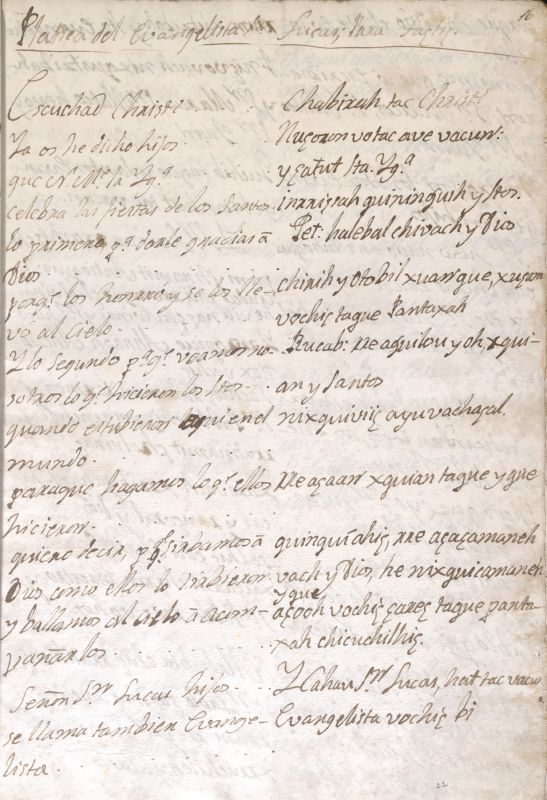 16
Platica del Evangelista Lucas, Para
Escuchad Christi
Ya os he dicho hijos
que N. Me. la Yg.ª
celebra las fiestas de los Santos
lo primero p.ª darle gracias â
Dios
porq.e los honrró y se los lle-
vó al Cielo.
Y lo segundo p.ª q.e veamos no-
sotros lo q.e hicieron los Stos.
quando estubieron aqui en el
mundo.
paraque hagamos lo q.e ellos
hicieron.
quiero decir, p.ª q.e sirbamos â
Dios como ellos lo sirbieron
y ballamos al Cielo â acom-
pañarlos.
Señor S.n Lucas hijos.
se llama tambien Evange-
lista.
Chabirah tac Christi
Nuçoron votac ave vacun:
y çatut Sta. Yg.ª
inrriçah quininquih y Stos.
Pet. halebal chivach y Dios
chirih y Otobil xuan que, xuçam
vochiç taque Pantaxah
Rucab: rre aquilou y oh xqui-
an y Santos
nixquiviiç ayu vachaçal.
rre açaan xquian taque y que
quinquiahiç, rre açaçamaneh
vach y Dios, he nixquicamaneh
y que
açoch vochiç çareç taque panta-
xah chicuchilhiç.
Y Cahau S.n Lucas, hat tac vacun
Evangelista vochiç bi
22